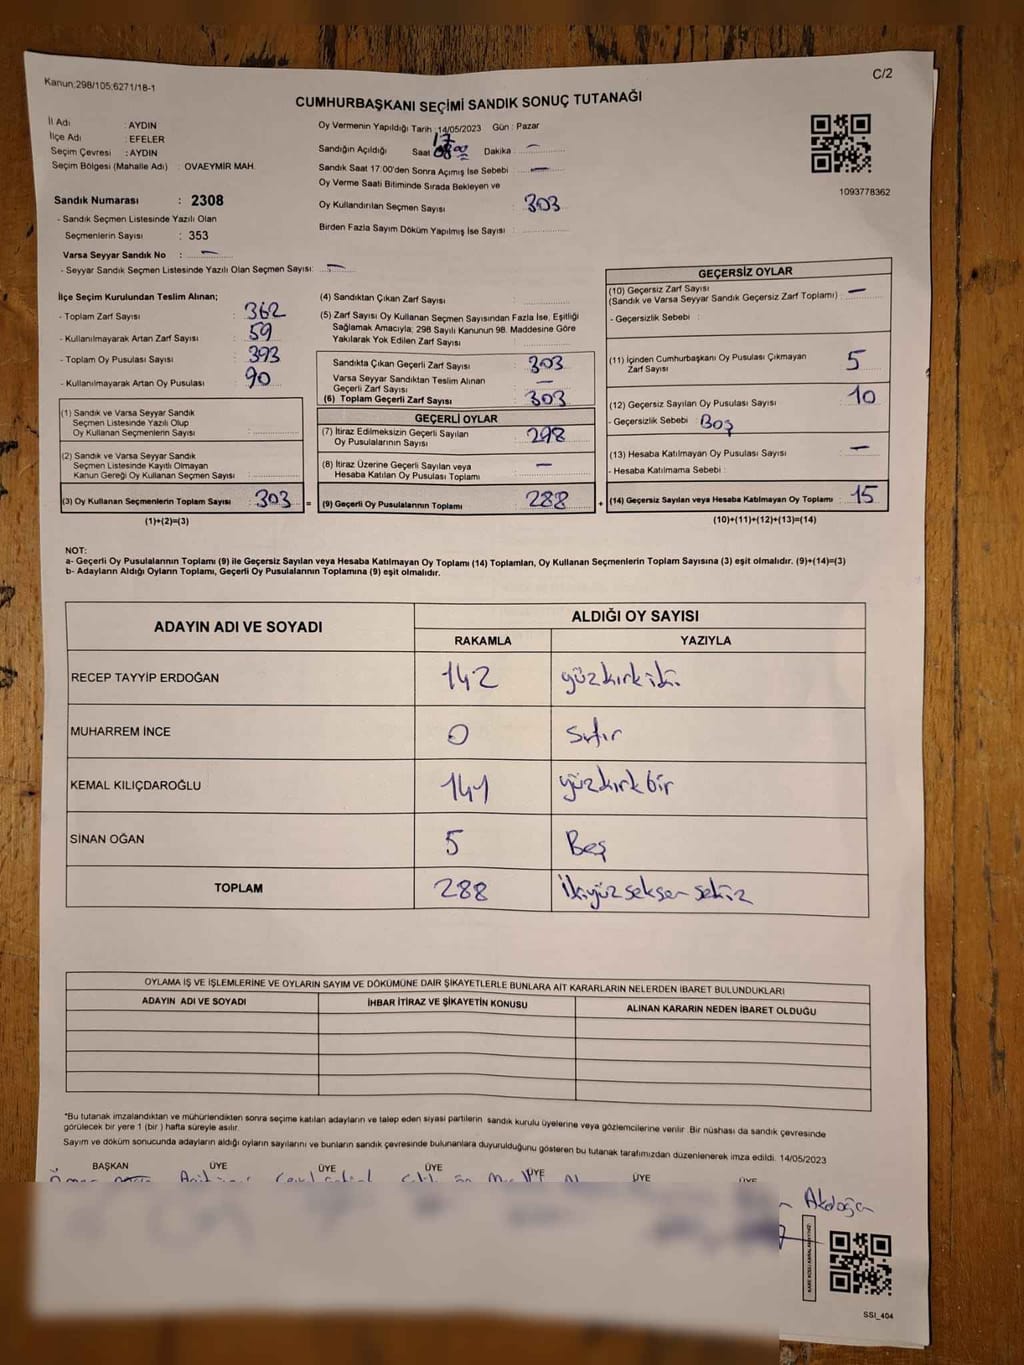 Kanun;298/105;6271/18-1
C/2
CUMHURBAŞKANI SEÇİMİ SANDIK SONUÇ TUTANAĞI
İl Adı : AYDIN
İlçe Adı : EFELER
Seçim Çevresi : AYDIN
Seçim Bölgesi (Mahalle Adı) : OVAEYMİR MAH.
Sandık Numarası : 2308
- Sandık Seçmen Listesinde Yazılı Olan
Seçmenlerin Sayısı : 353
Varsa Seyyar Sandık No : —
- Seyyar Sandık Seçmen Listesinde Yazılı Olan Seçmen Sayısı: —
Oy Vermenin Yapıldığı Tarih :14/05/2023 Gün : Pazar
Sandığın Açıldığı Saat 17 00 Dakika : —
Sandık Saat 17:00'den Sonra Açımış İse Sebebi : —
Oy Verme Saati Bitiminde Sırada Bekleyen ve
Oy Kullandırılan Seçmen Sayısı : 303
Birden Fazla Sayım Döküm Yapılmış İse Sayısı :
1093778362
İlçe Seçim Kurulundan Teslim Alınan;
- Toplam Zarf Sayısı : 362
- Kullanılmayarak Artan Zarf Sayısı : 59
- Toplam Oy Pusulası Sayısı : 393
- Kullanılmayarak Artan Oy Pusulası : 90
(1) Sandık ve Varsa Seyyar Sandık
Seçmen Listesinde Yazılı Olup
Oy Kullanan Seçmenlerin Sayısı :
(2) Sandık ve Varsa Seyyar Sandık
Seçmen Listesinde Kayıtlı Olmayan
Kanun Gereği Oy Kullanan Seçmen Sayısı :
(3) Oy Kullanan Seçmenlerin Toplam Sayısı : 303 =
(1)+(2)=(3)
(4) Sandıktan Çıkan Zarf Sayısı :
(5) Zarf Sayısı Oy Kullanan Seçmen Sayısından Fazla İse, Eşitliği
Sağlamak Amacıyla; 298 Sayılı Kanunun 98. Maddesine Göre
Yakılarak Yok Edilen Zarf Sayısı :
Sandıkta Çıkan Geçerli Zarf Sayısı : 303
Varsa Seyyar Sandıktan Teslim Alınan
Geçerli Zarf Sayısı : —
(6) Toplam Geçerli Zarf Sayısı : 303
GEÇERLİ OYLAR
(7) İtiraz Edilmeksizin Geçerli Sayılan
Oy Pusulalarının Sayısı : 298
(8) İtiraz Üzerine Geçerli Sayılan veya
Hesaba Katılan Oy Pusulası Toplamı : —
(9) Geçerli Oy Pusulalarının Toplamı : 288 +
GEÇERSİZ OYLAR
(10) Geçersiz Zarf Sayısı
(Sandık ve Varsa Seyyar Sandık Geçersiz Zarf Toplamı) : —
- Geçersizlik Sebebi :
(11) İçinden Cumhurbaşkanı Oy Pusulası Çıkmayan
Zarf Sayısı : 5
(12) Geçersiz Sayılan Oy Pusulası Sayısı : 10
- Geçersizlik Sebebi : Boş
(13) Hesaba Katılmayan Oy Pusulası Sayısı : —
- Hesaba Katılmama Sebebi :
(14) Geçersiz Sayılan veya Hesaba Katılmayan Oy Toplamı : 15
(10)+(11)+(12)+(13)=(14)
NOT:
a- Geçerli Oy Pusulalarının Toplamı (9) ile Geçersiz Sayılan veya Hesaba Katılmayan Oy Toplamı (14) Toplamları, Oy Kullanan Seçmenlerin Toplam Sayısına (3) eşit olmalıdır. (9)+(14)=(3)
b- Adayların Aldığı Oyların Toplamı, Geçerli Oy Pusulalarının Toplamına (9) eşit olmalıdır.
ADAYIN ADI VE SOYADI
ALDIĞI OY SAYISI
RAKAMLA YAZIYLA
RECEP TAYYİP ERDOĞAN 142 yüzkırkiki
MUHARREM İNCE 0 Sıfır
KEMAL KILIÇDAROĞLU 141 yüzkırkbir
SİNAN OĞAN 5 Beş
TOPLAM 288 İkiyüzseksensekiz
OYLAMA İŞ VE İŞLEMLERİNE VE OYLARIN SAYIM VE DÖKÜMÜNE DAİR ŞİKAYETLERLE BUNLARA AİT KARARLARIN NELERDEN İBARET BULUNDUKLARI
ADAYIN ADI VE SOYADI İHBAR İTİRAZ VE ŞİKAYETİN KONUSU ALINAN KARARIN NEDEN İBARET OLDUĞU
*Bu tutanak imzalandıktan ve mühürlendikten sonra seçime katılan adayların ve talep eden siyasi partilerin sandık kurulu üyelerine veya gözlemcilerine verilir. Bir nüshası da sandık çevresinde
görülecek bir yere 1 (bir ) hafta süreyle asılır.
Sayım ve döküm sonucunda adayların aldığı oyların sayılarını ve bunların sandık çevresinde bulunanlara duyurulduğunu gösteren bu tutanak tarafımızdan düzenlenerek imza edildi. 14/05/2023
BAŞKAN ÜYE ÜYE ÜYE ÜYE ÜYE ÜYE
Akdoğan
SSI_404